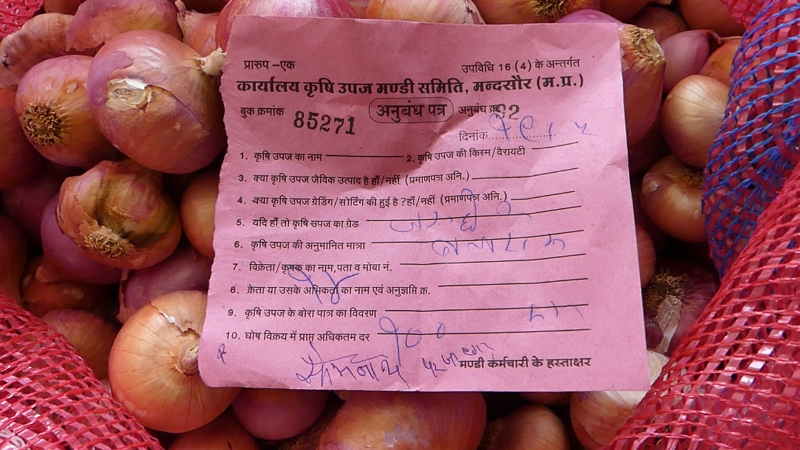 प्रारुप –एक उपविधि 16 (4) के अन्तर्गत
कार्यालय कृषि उपज मण्डी समिति, मन्दसौर (म.प्र.)
बुक क्रमांक 85271 अनुबंध पत्र अनुबंध क्र. 22
दिनांक
1. कृषि उपज का नाम 2. कृषि उपज की किस्म/वेरायटी
3. क्या कृषि उपज जैविक उत्पाद है हाँ/नहीं (प्रमाणपत्र अनि.)
4. क्या कृषि उपज ग्रेडिंग/सोर्टिंग की हुई है ?हाँ/नहीं (प्रमाणपत्र अनि.)
5. यदि हाँ तो कृषि उपज का ग्रेड
6. कृषि उपज की अनुमानित मात्रा
7. विक्रेता/कृषक का नाम, पता व मोबा नं.
8. क्रेता या उसके अभिकर्ता का नाम एवं अनुज्ञप्ति क्र.
9. कृषि उपज के बोरा पात्र का विवरण
10. घोष विक्रय में प्राप्त अधिकतम दर १००
मण्डी कर्मचारी के हस्ताक्षर